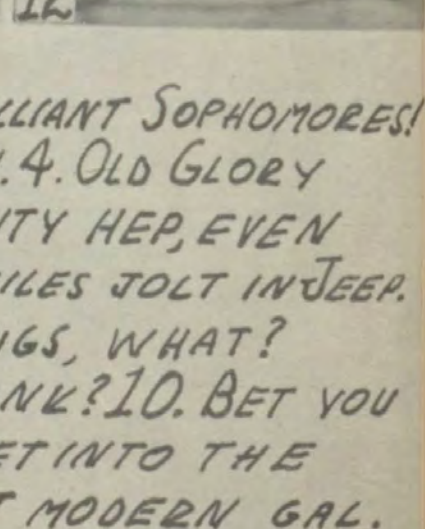 12
LLIANT SOPHOMORES!
.4. OLD GLORY
ITY HEP, EVEN
ILES JOLT IN JEEP.
GS, WHAT?
NK? 10. BET YOU
ET INTO THE
T MODERN GAL.